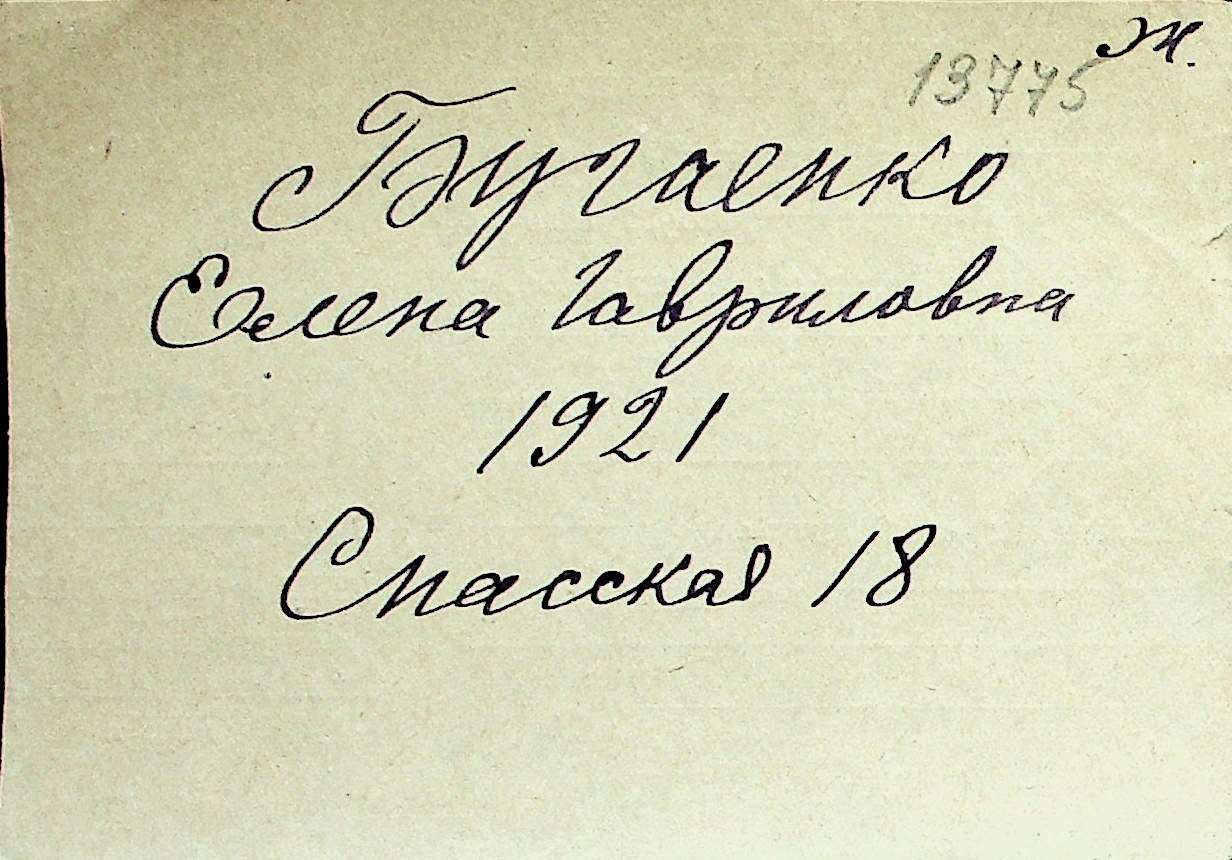 ж.
13775
Бугаенко
Елена Гавриловна
1921
Спасская 18